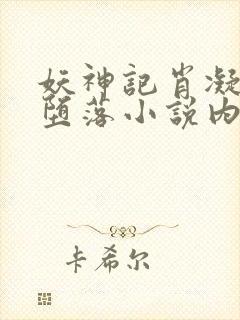 妖神記肖凝
堕落小說內
卡希尔